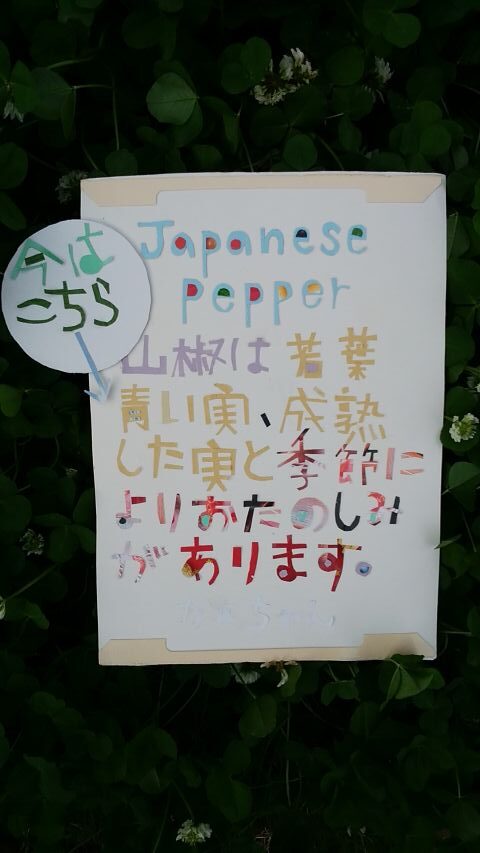 今は
こちら
Japanese
pepper
山椒は若葉
青い実、成熟
した実と季節に
よりおたのしみ
があります。